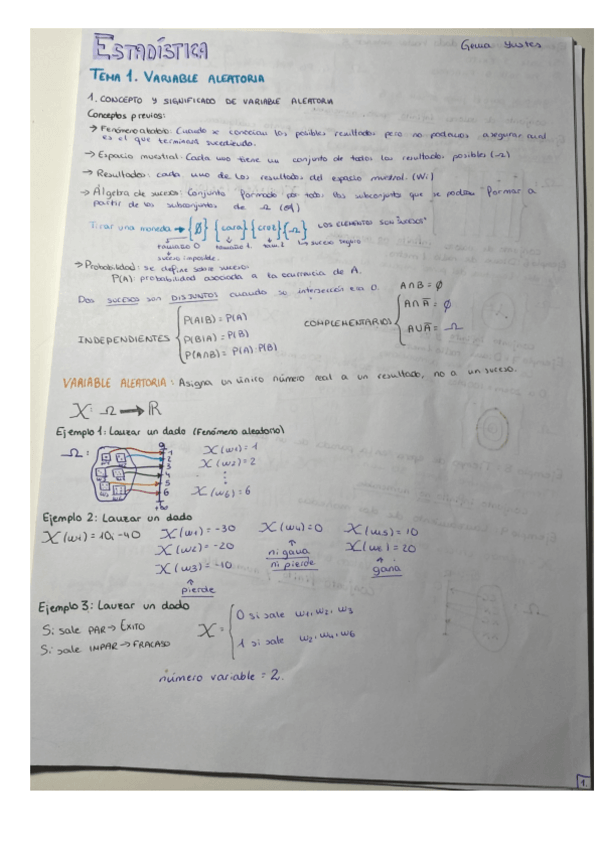 ESTADÍSTICA
Gema Yustes
TEMA 1. VARIABLE ALEATORIA
1. CONCEPTO Y SIGNIFICADO DE VARIABLE ALEATORIA
Conceptos previos:
→ Fenómeno aleatorio: Cuando se conocían los posibles resultados pero no podamos asegurar cual
es el que terminará sucediendo.
→ Espacio muestral: Cada uno tiene un conjunto de todos los resultados posibles (Ω)
→ Resultados: cada uno de los resultados del espacio muestral. (Wi)
→ Álgebra de sucesos: Conjunto formado por todos los subconjuntos que se podían formar a
partir de los subconjuntos de Ω
Tirar una moneda → {∅} {cara} {cruz} {Ω} LOS ELEMENTOS SON "SUCESOS"
tamaño 0 tamaño 1 tam. 1 ↳ suceso seguro
suceso imposible.
→ Probabilidad: se define sobre sucesos
P(A): probabilidad asociada a la ocurrencia de A.
Dos sucesos son DISJUNTOS cuando su intersección es 0. A∩B = ∅
INDEPENDIENTES { P(A|B) = P(A)
P(B|A) = P(B)
P(A∩B) = P(A)·P(B)
COMPLEMENTARIOS { A∩Ā = ∅
A∪Ā = Ω
VARIABLE ALEATORIA: Asigna un único número real a un resultado, no a un suceso.
X: Ω → ℝ
Ejemplo 1: Lanzar un dado (Fenómeno aleatorio)
Ω:
1
2
3
4
5
6
X(w1) = 1
X(w2) = 2
X(w6) = 6
Ejemplo 2: Lanzar un dado
X(w1) = -30 X(w4) = 0 X(w5) = 10
X(w2) = -20 X(w6) = 20
X(w3) = -10
ni gana
ni pierde
gana
pierde
Ejemplo 3: Lanzar un dado
Si sale PAR → ÉXITO
Si sale IMPAR → FRACASO
X = { 0 si sale w1, w2, w3
1 si sale w2, w4, w6
número variable = 2.
1.